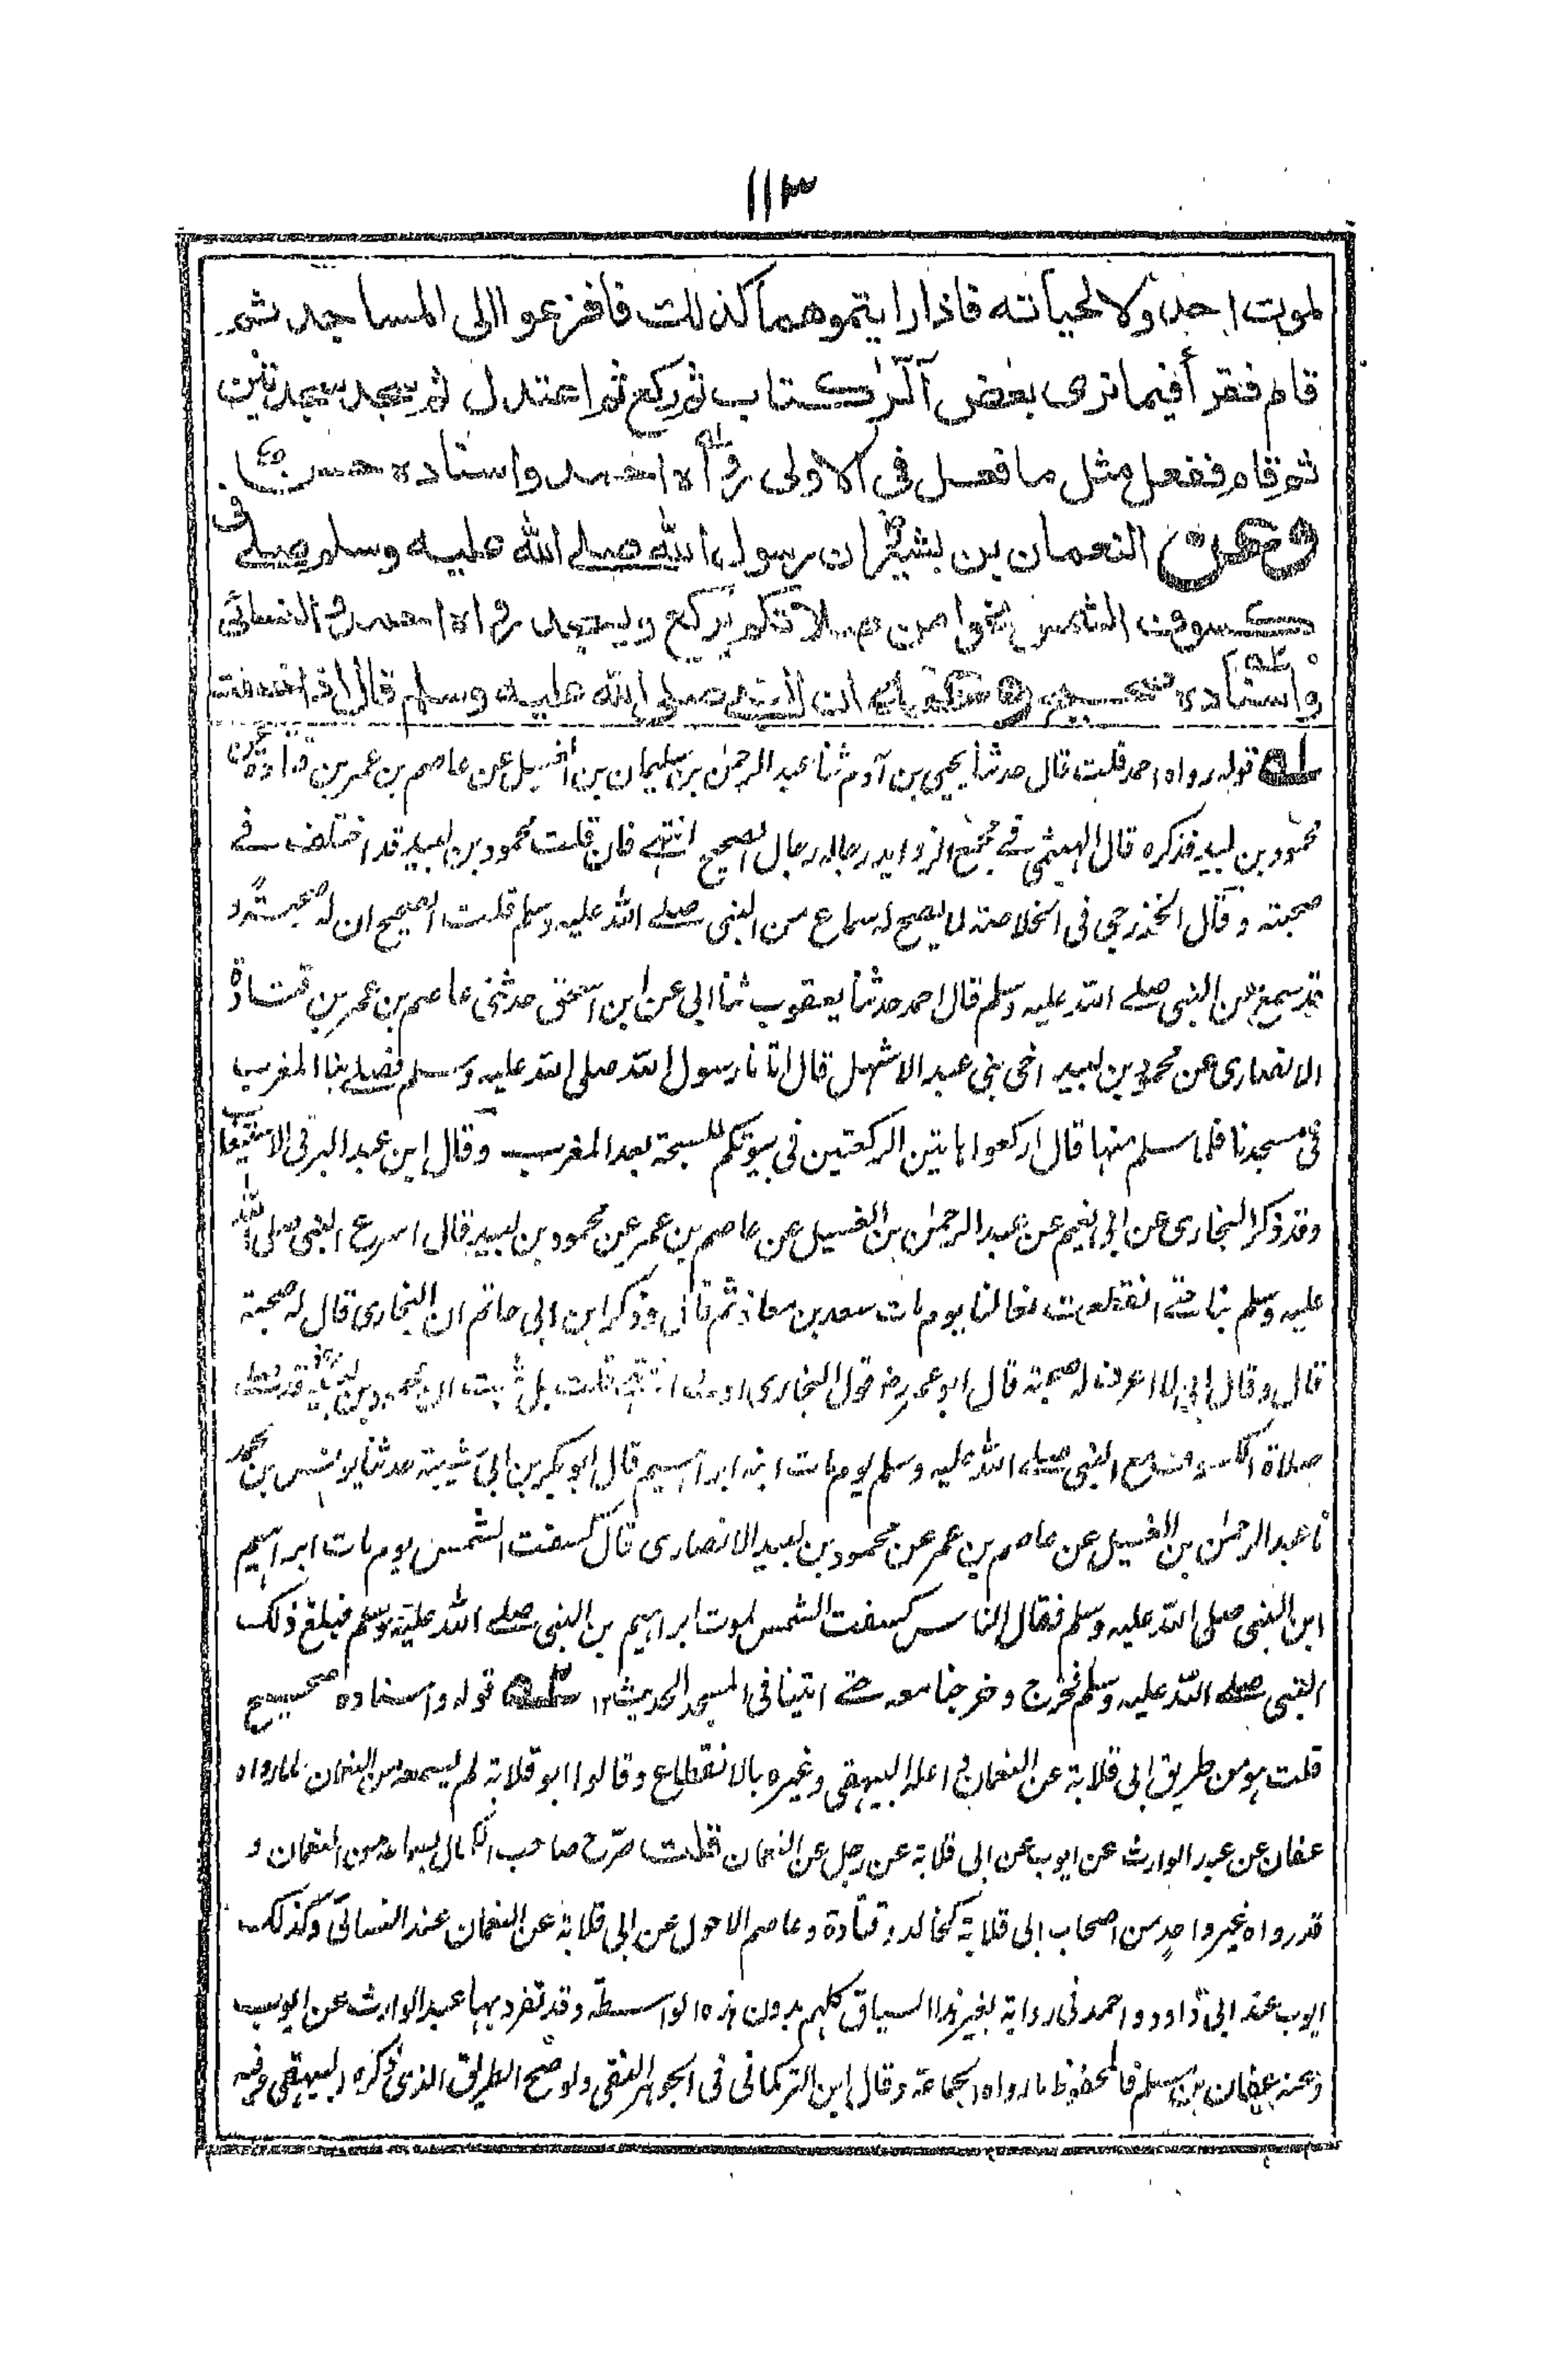 ١١٣
لموت احد ولا لحياته فاذا رايتموهما كذلك فافزعوا الى المساجد ثم
قام فقرأ فيما نرى بعض آلر كتاب ثم ركع ثم اعتدل ثم سجد سجدتين
ثم قام ففعل مثل ما فعل فى الاولى رواه احمد واسناده حسن
وعن النعمان بن بشير ان رسول الله صلے الله عليه وسلم صلے فى
كسوف الشمس نحوا من صلاتكم يركع ويسجد رواه احمد والنسائى
واسناده صحيح وعنه ان النبى صلى الله عليه وسلم قال اذا خسفت
له قوله رواه احمد قلت قال حدثنا يحيى بن آدم ثنا عبد الرحمن بن سليمان بن الغسيل عن عاصم بن عمر بن قتادة عن
محمود بن لبيد فذكره قال الهيثمى فے مجمع الزوايد رجاله رجال الصحيح انتهے فان قلت محمود بن لبيد قد اختلف فے
صحبته وقال الخزرجى فى الخلاصة لما يصح له سماع من النبى صلے الله عليه وسلم قلت الصحيح ان له صحبة و
قد سمع من النبى صلے الله عليه وسلم قال احمد حدثنا يعقوب ثنا ابى عن ابن اسحق حدثنى عاصم بن عمر بن قتادة
الانصارى عن محمود بن لبيد اخى بنى عبد الاشهل قال اتانا رسول الله صلى الله عليه وسلم فصلے بنا المغرب
فى مسجدنا فلما سلم منها قال اركعوا هاتين الركعتين فى بيوتكم للسبحة بعد المغرب وقال ابن عبد البر فى الاستيعاب
وقد ذكر البخارى عن ابى نعيم عن عبد الرحمن بن الغسيل عن عاصم بن عمر عن محمود بن لبيد قال اسرع النبى صلى الله
عليه وسلم بنا حتے انقطعت نعالنا يوم مات سعد بن معاذ ثم قال وذكر ابن ابى حاتم ان البخارى قال له صحبة
قال وقال ابى لا اعرف له صحبة قال ابو عمر قول البخارى اولى انتهے قلت بل ثبت ان محمود بن لبيد قد صلے
صلاة الكسوف مع النبى صلے الله عليه وسلم يوم مات ابنه ابراهيم قال ابو بكر بن ابى شيبة حدثنا يونس بن محمد
نا عبد الرحمن بن الغسيل عن عاصم بن عمر عن محمود بن لبيد الانصارى قال كسفت الشمس يوم مات ابراهيم
ابن النبى صلى الله عليه وسلم فقال الناس كسفت الشمس لموت ابراهيم بن النبى صلے الله عليه وسلم فبلغ ذلك
النبى صلے الله عليه وسلم فخرج وخرجنا معه حتے اتينا فى المسجد الحديث ١٢ قوله واسناده صحيح
قلت هو من طريق ابى قلابة عن النعمان اعله البيهقى وغيره بالانقطاع وقالوا ابو قلابة لم يسمعه من النعمان لما رواه
عفان عن عبد الوارث عن ايوب عن ابى قلابة عن رجل عن النعمان قلت صرّح صاحب الكمال بسماعه من النعمان و
قد رواه غير واحد من اصحاب ابى قلابة كخالد وقتادة وعاصم الاحول عن ابى قلابة عن النعمان عند النسائى وكذلك
ايوب عند ابى داود واحمد فى رواية بغير هذا السياق كلهم بدون هذه الواسطة وقد تفرد بها عبد الوارث عن ايوب
وعنه عفان بن مسلم فالمحفوظ ما رواه الجماعة وقال ابن التركمانى فى الجوهر النقى ولو صح الطريق الذى ذكره البيهقى وفيه